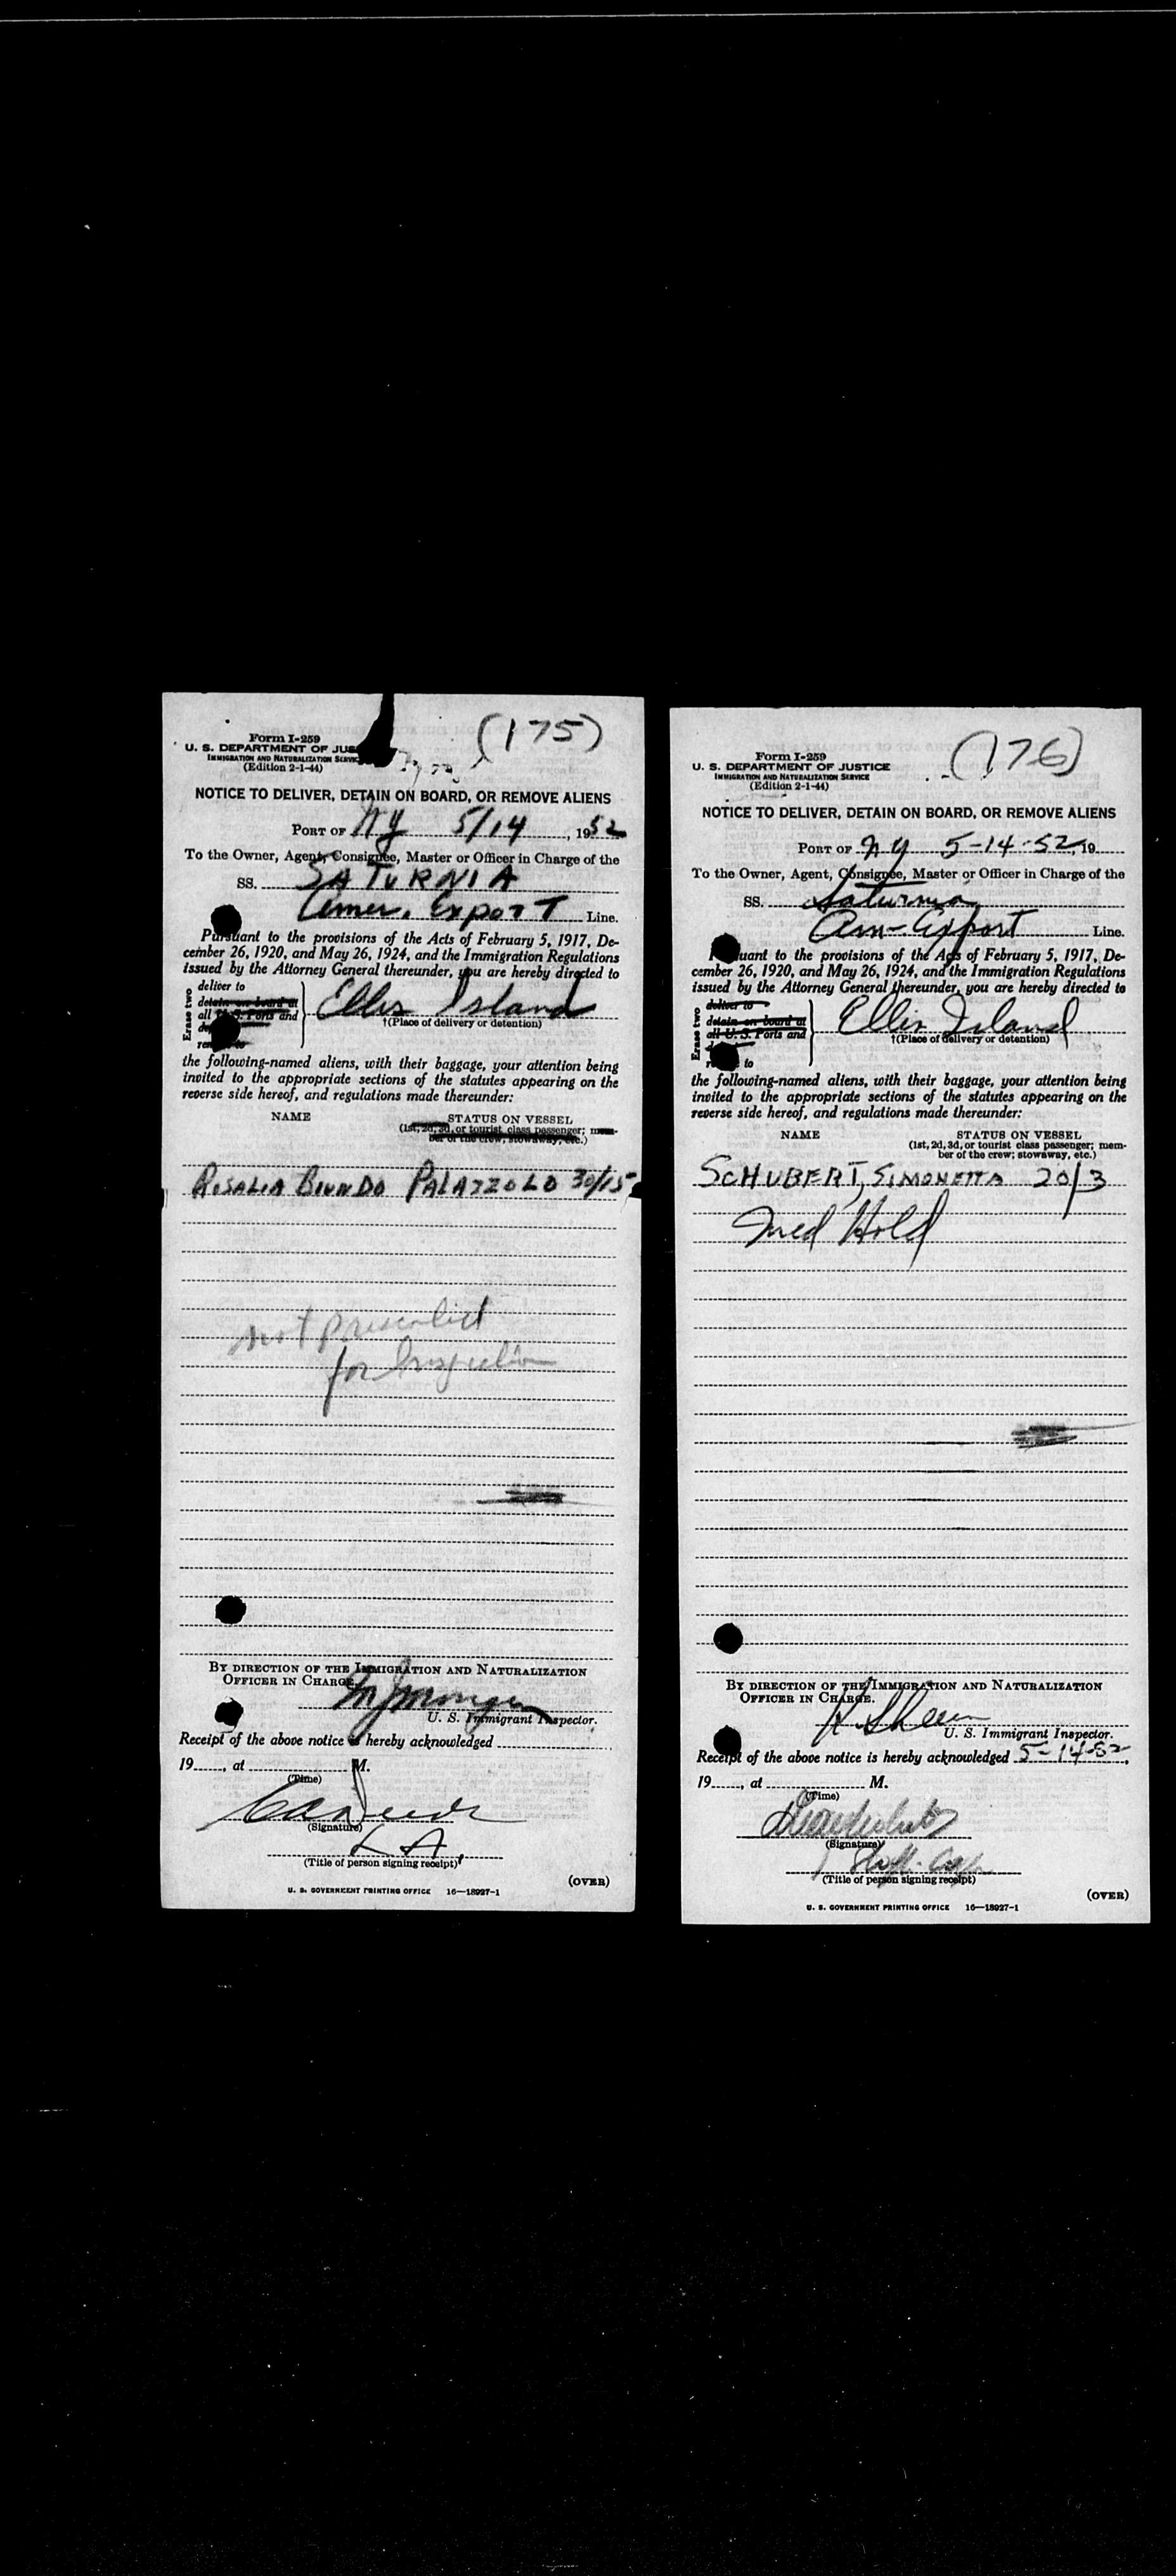 (175)
Form I-259
U. S. DEPARTMENT OF JUS
IMMIGRATION AND NATURALIZATION SERVIC
(Edition 2-1-44)
NOTICE TO DELIVER, DETAIN ON BOARD, OR REMOVE ALIENS
PORT OF NY 5/14, 1952
To the Owner, Agent, Consignee, Master or Officer in Charge of the
SS. SATURNIA
Amer. Export Line.
Pursuant to the provisions of the Acts of February 5, 1917, De-
cember 26, 1920, and May 26, 1924, and the Immigration Regulations
issued by the Attorney General thereunder, you are hereby directed to
Erase two
deliver to
detain on board at
all U. S. Ports and
Ellis Island
†(Place of delivery or detention)
the following-named aliens, with their baggage, your attention being
invited to the appropriate sections of the statutes appearing on the
reverse side hereof, and regulations made thereunder:
NAME STATUS ON VESSEL
(1st, 2d, 3d, or tourist class passenger; mem-
ber of the crew; stowaway, etc.)
ROSALIA BIUNDO PALAZZOLO 30/15
not presented
for Inspection
BY DIRECTION OF THE IMMIGRATION AND NATURALIZATION
OFFICER IN CHARGE.
U. S. Immigrant Inspector.
Receipt of the above notice is hereby acknowledged
19, at M.
(Time)
(Signature)
(Title of person signing receipt)
(OVER)
U. S. GOVERNMENT PRINTING OFFICE 16—18927-1
(176)
Form I-259
U. S. DEPARTMENT OF JUSTICE
IMMIGRATION AND NATURALIZATION SERVICE
(Edition 2-1-44)
NOTICE TO DELIVER, DETAIN ON BOARD, OR REMOVE ALIENS
PORT OF NY 5-14-52, 19
To the Owner, Agent, Consignee, Master or Officer in Charge of the
SS. Saturnia
Am-Export Line.
Pursuant to the provisions of the Acts of February 5, 1917, De-
cember 26, 1920, and May 26, 1924, and the Immigration Regulations
issued by the Attorney General thereunder, you are hereby directed to
Erase two
deliver to
detain on board at
all U. S. Ports and
to
Ellis Island
†(Place of delivery or detention)
the following-named aliens, with their baggage, your attention being
invited to the appropriate sections of the statutes appearing on the
reverse side hereof, and regulations made thereunder:
NAME STATUS ON VESSEL
(1st, 2d, 3d, or tourist class passenger; mem-
ber of the crew; stowaway, etc.)
SCHUBERT, SIMONETTA 20/3
Med Hold
BY DIRECTION OF THE IMMIGRATION AND NATURALIZATION
OFFICER IN CHARGE.
U. S. Immigrant Inspector.
Receipt of the above notice is hereby acknowledged 5-14-52,
19, at M.
(Time)
(Signature)
(Title of person signing receipt)
(OVER)
U. S. GOVERNMENT PRINTING OFFICE 16—18927-1